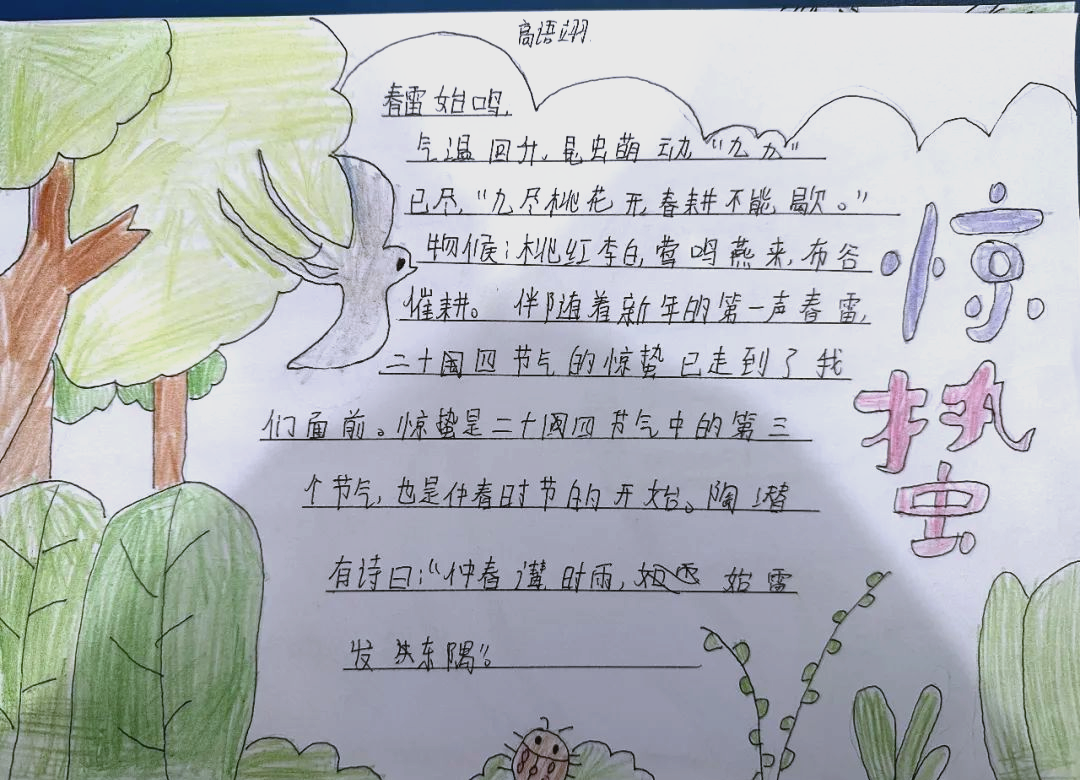 高语翊
春雷始鸣,
气温回升、昆虫萌动“九九”
已尽,“九尽桃花开,春耕不能歇。”
物候:桃红李白,莺鸣燕来,布谷
催耕。伴随着新年的第一声春雷,
二十四节气的惊蛰已走到了我
们面前。惊蛰是二十四节气中的第三
个节气,也是仲春时节的开始。陶潜
有诗曰:“仲春遘时雨,始雷
发东隅”。
惊蛰